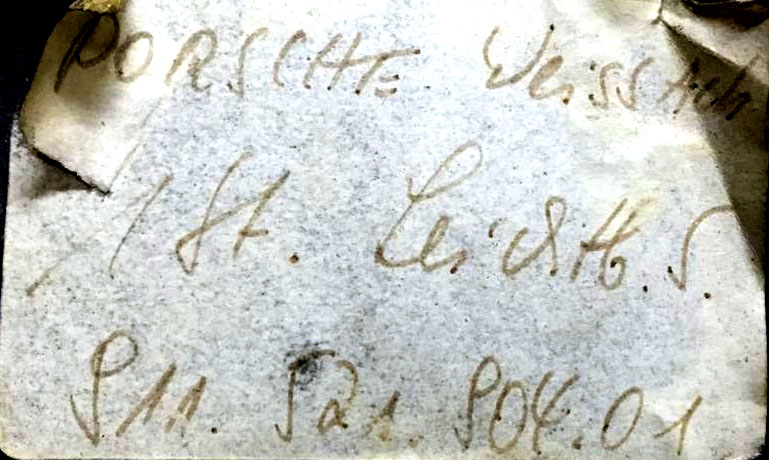 PORSCHE Weissach
1 St. Leichtb. S.
911. 521. 904.01